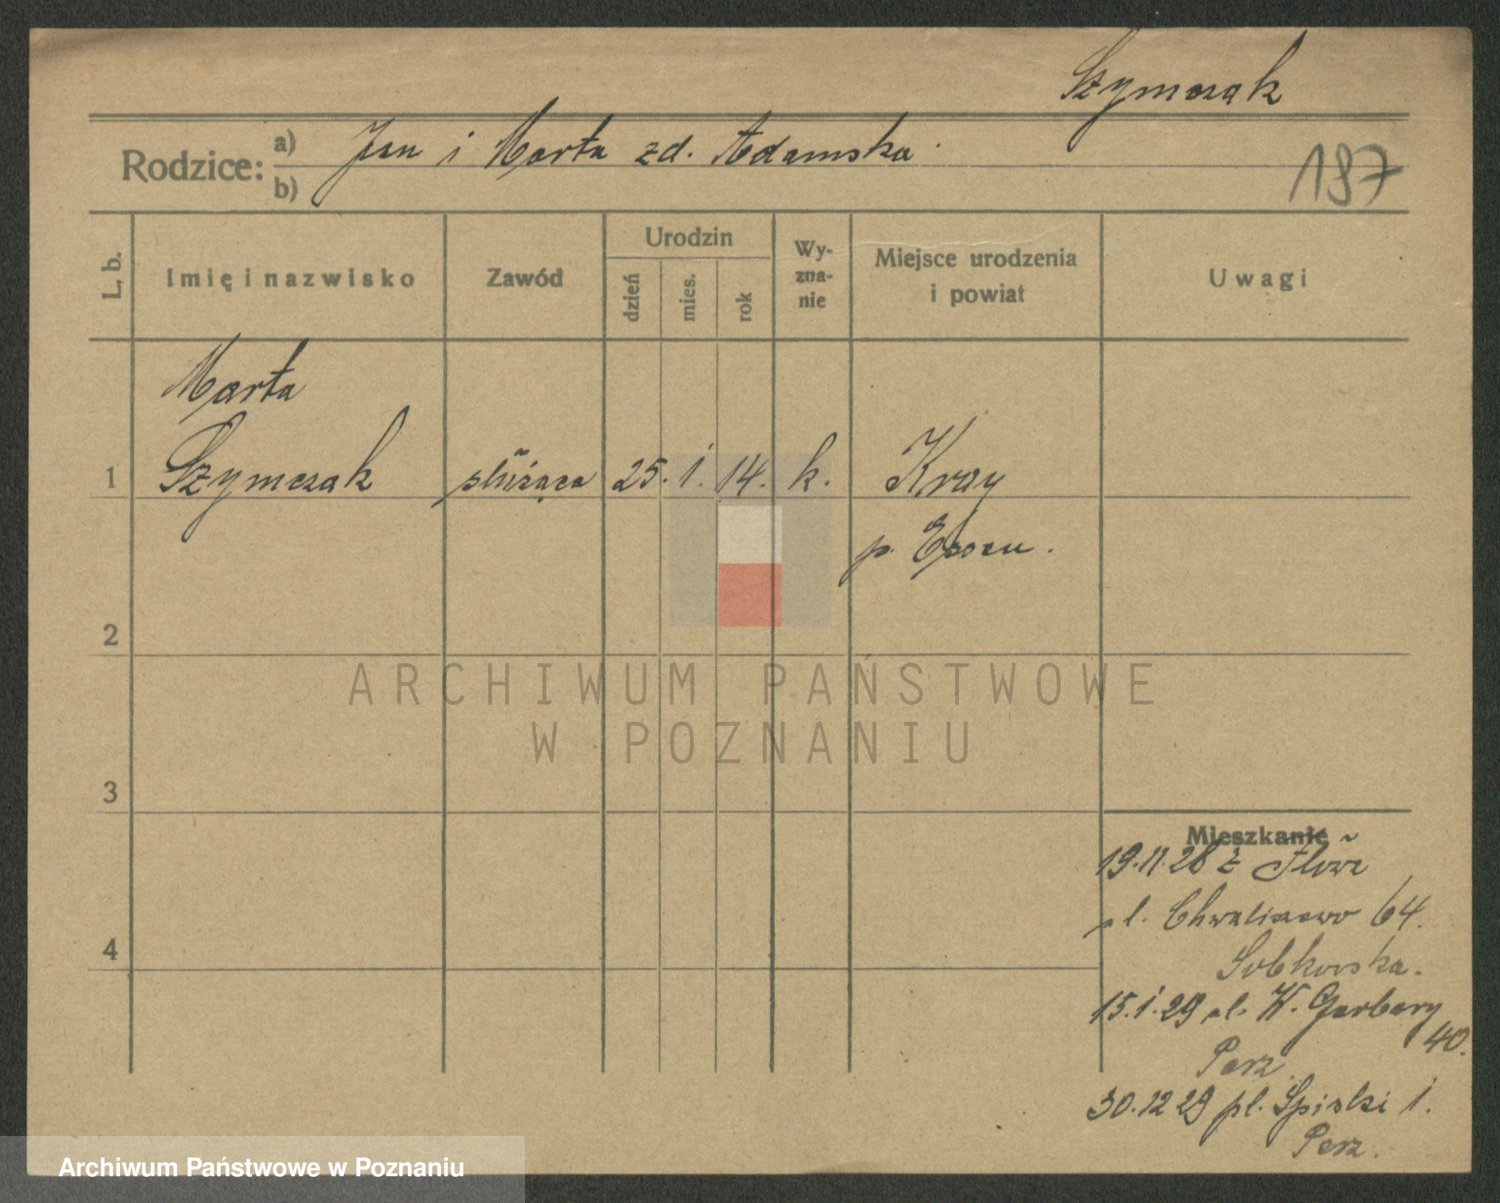 Szymczak
Rodzice: a) Jan i Marta zd. Adamska
b)
187
L. b.
Imię i nazwisko
Zawód
Urodzin
dzień
mies.
rok
Wy-
zna-
nie
Miejsce urodzenia
i powiat
Uwagi
Marta
1 Szymczak służąca 25. 1. 14. k. Kray
p.
2
3
4
ARCHIWUM PAŃSTWOWE
W POZNANIU
Mieszkanie
19.11.28 z
ul. Chwaliszewo 64.
Sobkowska.
15.1.29 ul. W. Garbary
40.
Perz
30.12 29 pl. Spiski 1.
Perz.
Archiwum Państwowe w Poznaniu